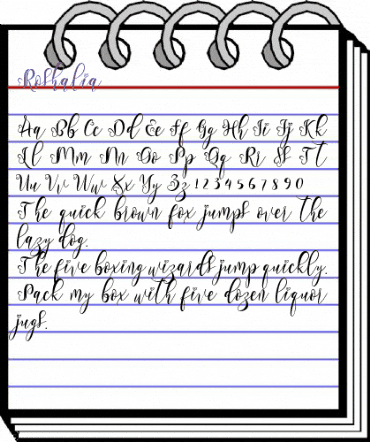 Roshalia
Aa Bb Cc Dd Ee Ff Gg Hh Ii Jj Kk
Ll Mm Nn Oo Pp Qq Rr Ss Tt
Uu Vv Ww Xx Yy Zz 1 2 3 4 5 6 7 8 9 0
The quick brown fox jumps over the
lazy dog.
The five boxing wizards jump quickly.
Pack my box with five dozen liquor
jugs.